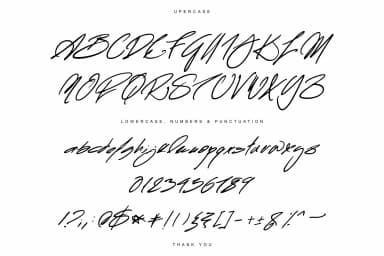 UPERCASE
ABCDEFGHIJKLM
NOPQRSTUVWXYZ
LOWERCASE, NUMBERS & PUNCTUATION
abcdefghijklmnopqrstuvwxyz
0123456789
THANK YOU